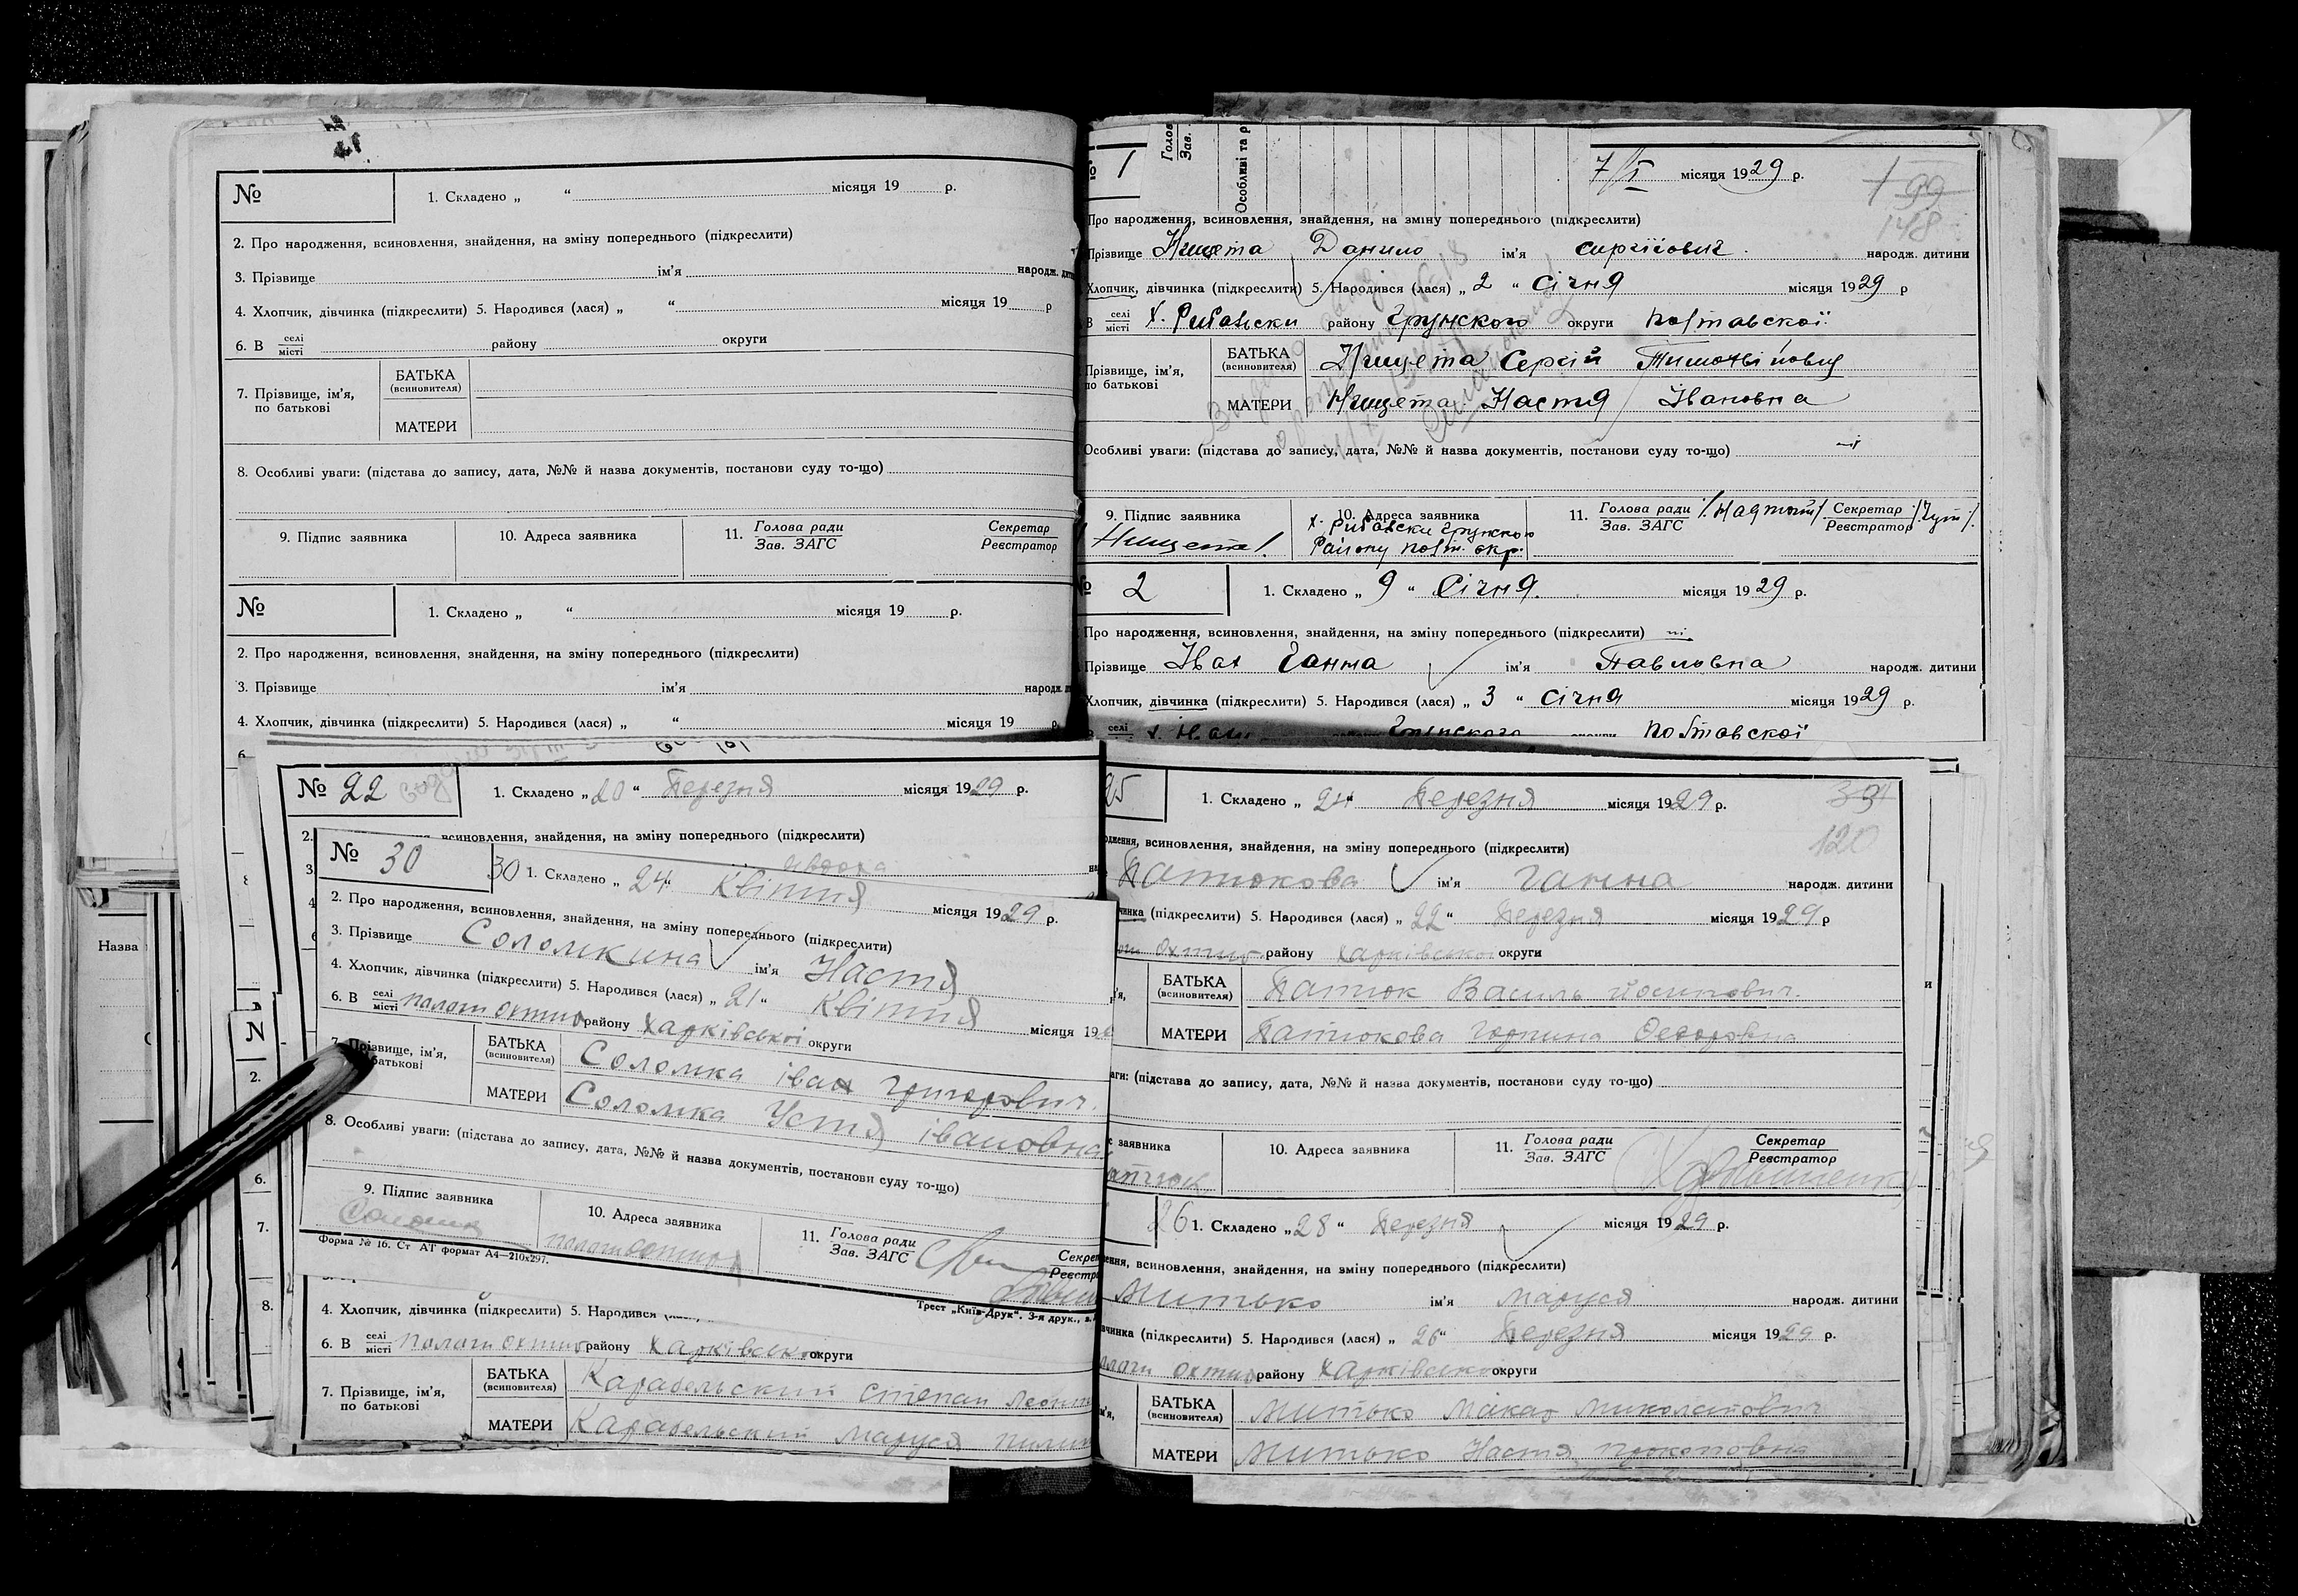 №
1. Складено „ “ місяця 19 р.
2. Про народження, всиновлення, знайдення, на зміну попереднього (підкреслити)
3. Прізвище ім'я народж.
4. Хлопчик, дівчинка (підкреслити) 5. Народився (лася) „ “ місяця 19 р
6. В селі місті району округи
7. Прізвище, ім'я, по батькові
БАТЬКА (всиновителя)
МАТЕРИ
8. Особливі уваги: (підстава до запису, дата, №№ й назва документів, постанови суду то-що)
9. Підпис заявника 10. Адреса заявника 11. Голова ради Зав. ЗАГС Секретар Реєстратор
№
1. Складено „ “ місяця 19 р.
2. Про народження, всиновлення, знайдення, на зміну попереднього (підкреслити)
3. Прізвище ім'я народж.
4. Хлопчик, дівчинка (підкреслити) 5. Народився (лася) „ “ місяця 19 р.
Голов
Зав.
Особливі та р
№ 1 7/I місяця 1929 р.
99
148
Про народження, всиновлення, знайдення, на зміну попереднього (підкреслити)
Прізвище Нищета Данило ім'я сиргійович народж. дитини
Хлопчик, дівчинка (підкреслити) 5. Народився (лася) „ 2 “ Січня місяця 1929 р
В селі місті х. району Грунского округи Полтавської
Прізвище, ім'я, по батькові
БАТЬКА (всиновителя) Нищета Сергій Тимотвійович
МАТЕРИ Нищета Настя Івановна
Особливі уваги: (підстава до запису, дата, №№ й назва документів, постанови суду то-що)
9. Підпис заявника 10. Адреса заявника 11. Голова ради Зав. ЗАГС Секретар Реєстратор
/Нищета/. Району Полт. окр.
№ 2 1. Складено „ 9 “ Січня. місяця 1929 р.
Про народження, всиновлення, знайдення, на зміну попереднього (підкреслити) ні
Прізвище Івах Ганна ім'я Павловна народж. дитини
Хлопчик, дівчинка (підкреслити) 5. Народився (лася) „ 3 “ Січня місяця 1929 р.
селі Грунского Полтавської
№ 22 1. Складено „ 20 “ Березня місяця 1929 р.
2. всиновлення, знайдення, на зміну попереднього (підкреслити)
№ 30 30 1. Складено „ 24 “ Квітня місяця 1929 р.
2. Про народження, всиновлення, знайдення, на зміну попереднього (підкреслити)
3. Прізвище Соломкина ім'я Настя
4. Хлопчик, дівчинка (підкреслити) 5. Народився (лася) „ 21 “ Квітня місяця 19
6. В селі місті Пологи Охтир району Харківської округи
7. Прізвище, ім'я, батькові
БАТЬКА (всиновителя) Соломка іван григорович.
МАТЕРИ Соломка Устя івановна
8. Особливі уваги: (підстава до запису, дата, №№ й назва документів, постанови суду то-що)
9. Підпис заявника 10. Адреса заявника 11. Голова ради Зав. ЗАГС
Форма № 16. Ст АТ формат А4—210х297.
Трест „Київ-Друк". 3-я друк.,
4. Хлопчик, дівчинка (підкреслити) 5. Народився
6. В селі місті Пологи Охтир району Харківської округи
7. Прізвище, ім'я, по батькові
БАТЬКА (всиновителя) Карабельский Степан
МАТЕРИ Карабельский Маруся
25 1. Складено „ 24 “ Березня місяця 1929 р.
120
всиновлення, знайдення, на зміну попереднього (підкреслити)
Патюкова ім'я Ганна народж. дитини
(підкреслити) 5. Народився (лася) „ 22 “ Березня місяця 1929 р
Охтир району Харківської округи
БАТЬКА (всиновителя) Патюк Василь Йосипович.
МАТЕРИ Патюкова Горпина Федоровна
(підстава до запису, дата, №№ й назва документів, постанови суду то-що)
заявника 10. Адреса заявника 11. Голова ради Зав. ЗАГС Секретар Реєстратор
26 1. Складено „ 28 “ Березня місяця 1929 р.
всиновлення, знайдення, на зміну попереднього (підкреслити)
Митько ім'я Маруся народж. дитини
(підкреслити) 5. Народився (лася) „ 26 “ Березня місяця 1929 р.
Охтир району Харківської округи
БАТЬКА (всиновителя) Митько Макар Миколайович
МАТЕРИ Митько Настя Прокоповна
Назва
2.
6.
7.
8.